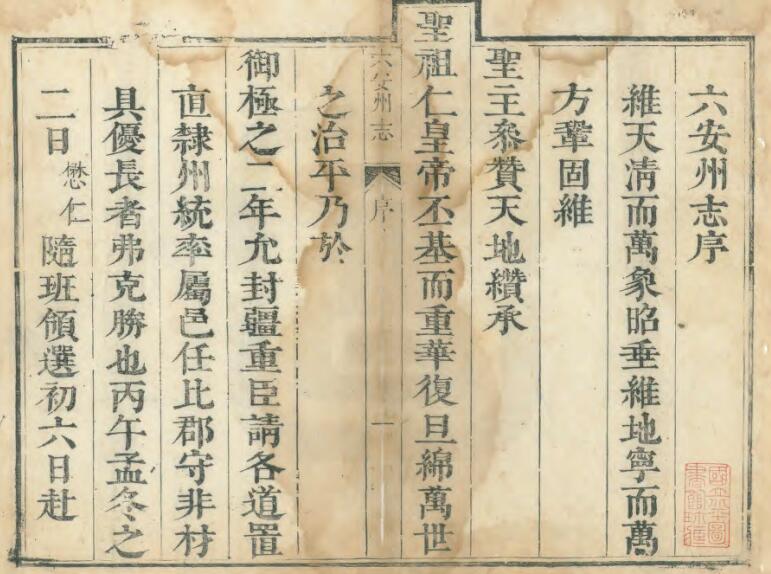 六安州志序
維天清而萬象昭垂維地寧而萬
方鞏固維
聖主叅贊天地纘承
聖祖仁皇帝丕基而重華復旦綿萬世
六安州志
序
一
之治平乃於
御極之二年允封疆重臣請各道置
直隸州統率屬邑任比郡守非材
具優長者弗克勝也丙午孟冬之
二日懋仁隨班領選初六日赴